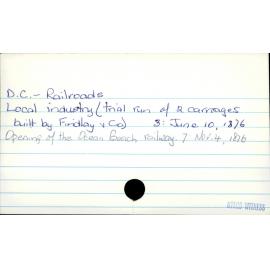 D.C. - Railroads
Local industry (trial run of 2 carriages
built by Findlay & Co) 3: June 10, 1876
Opening of the Ocean Beach railway. 7 Nov. 4, 1876
OTAGO WITNESS